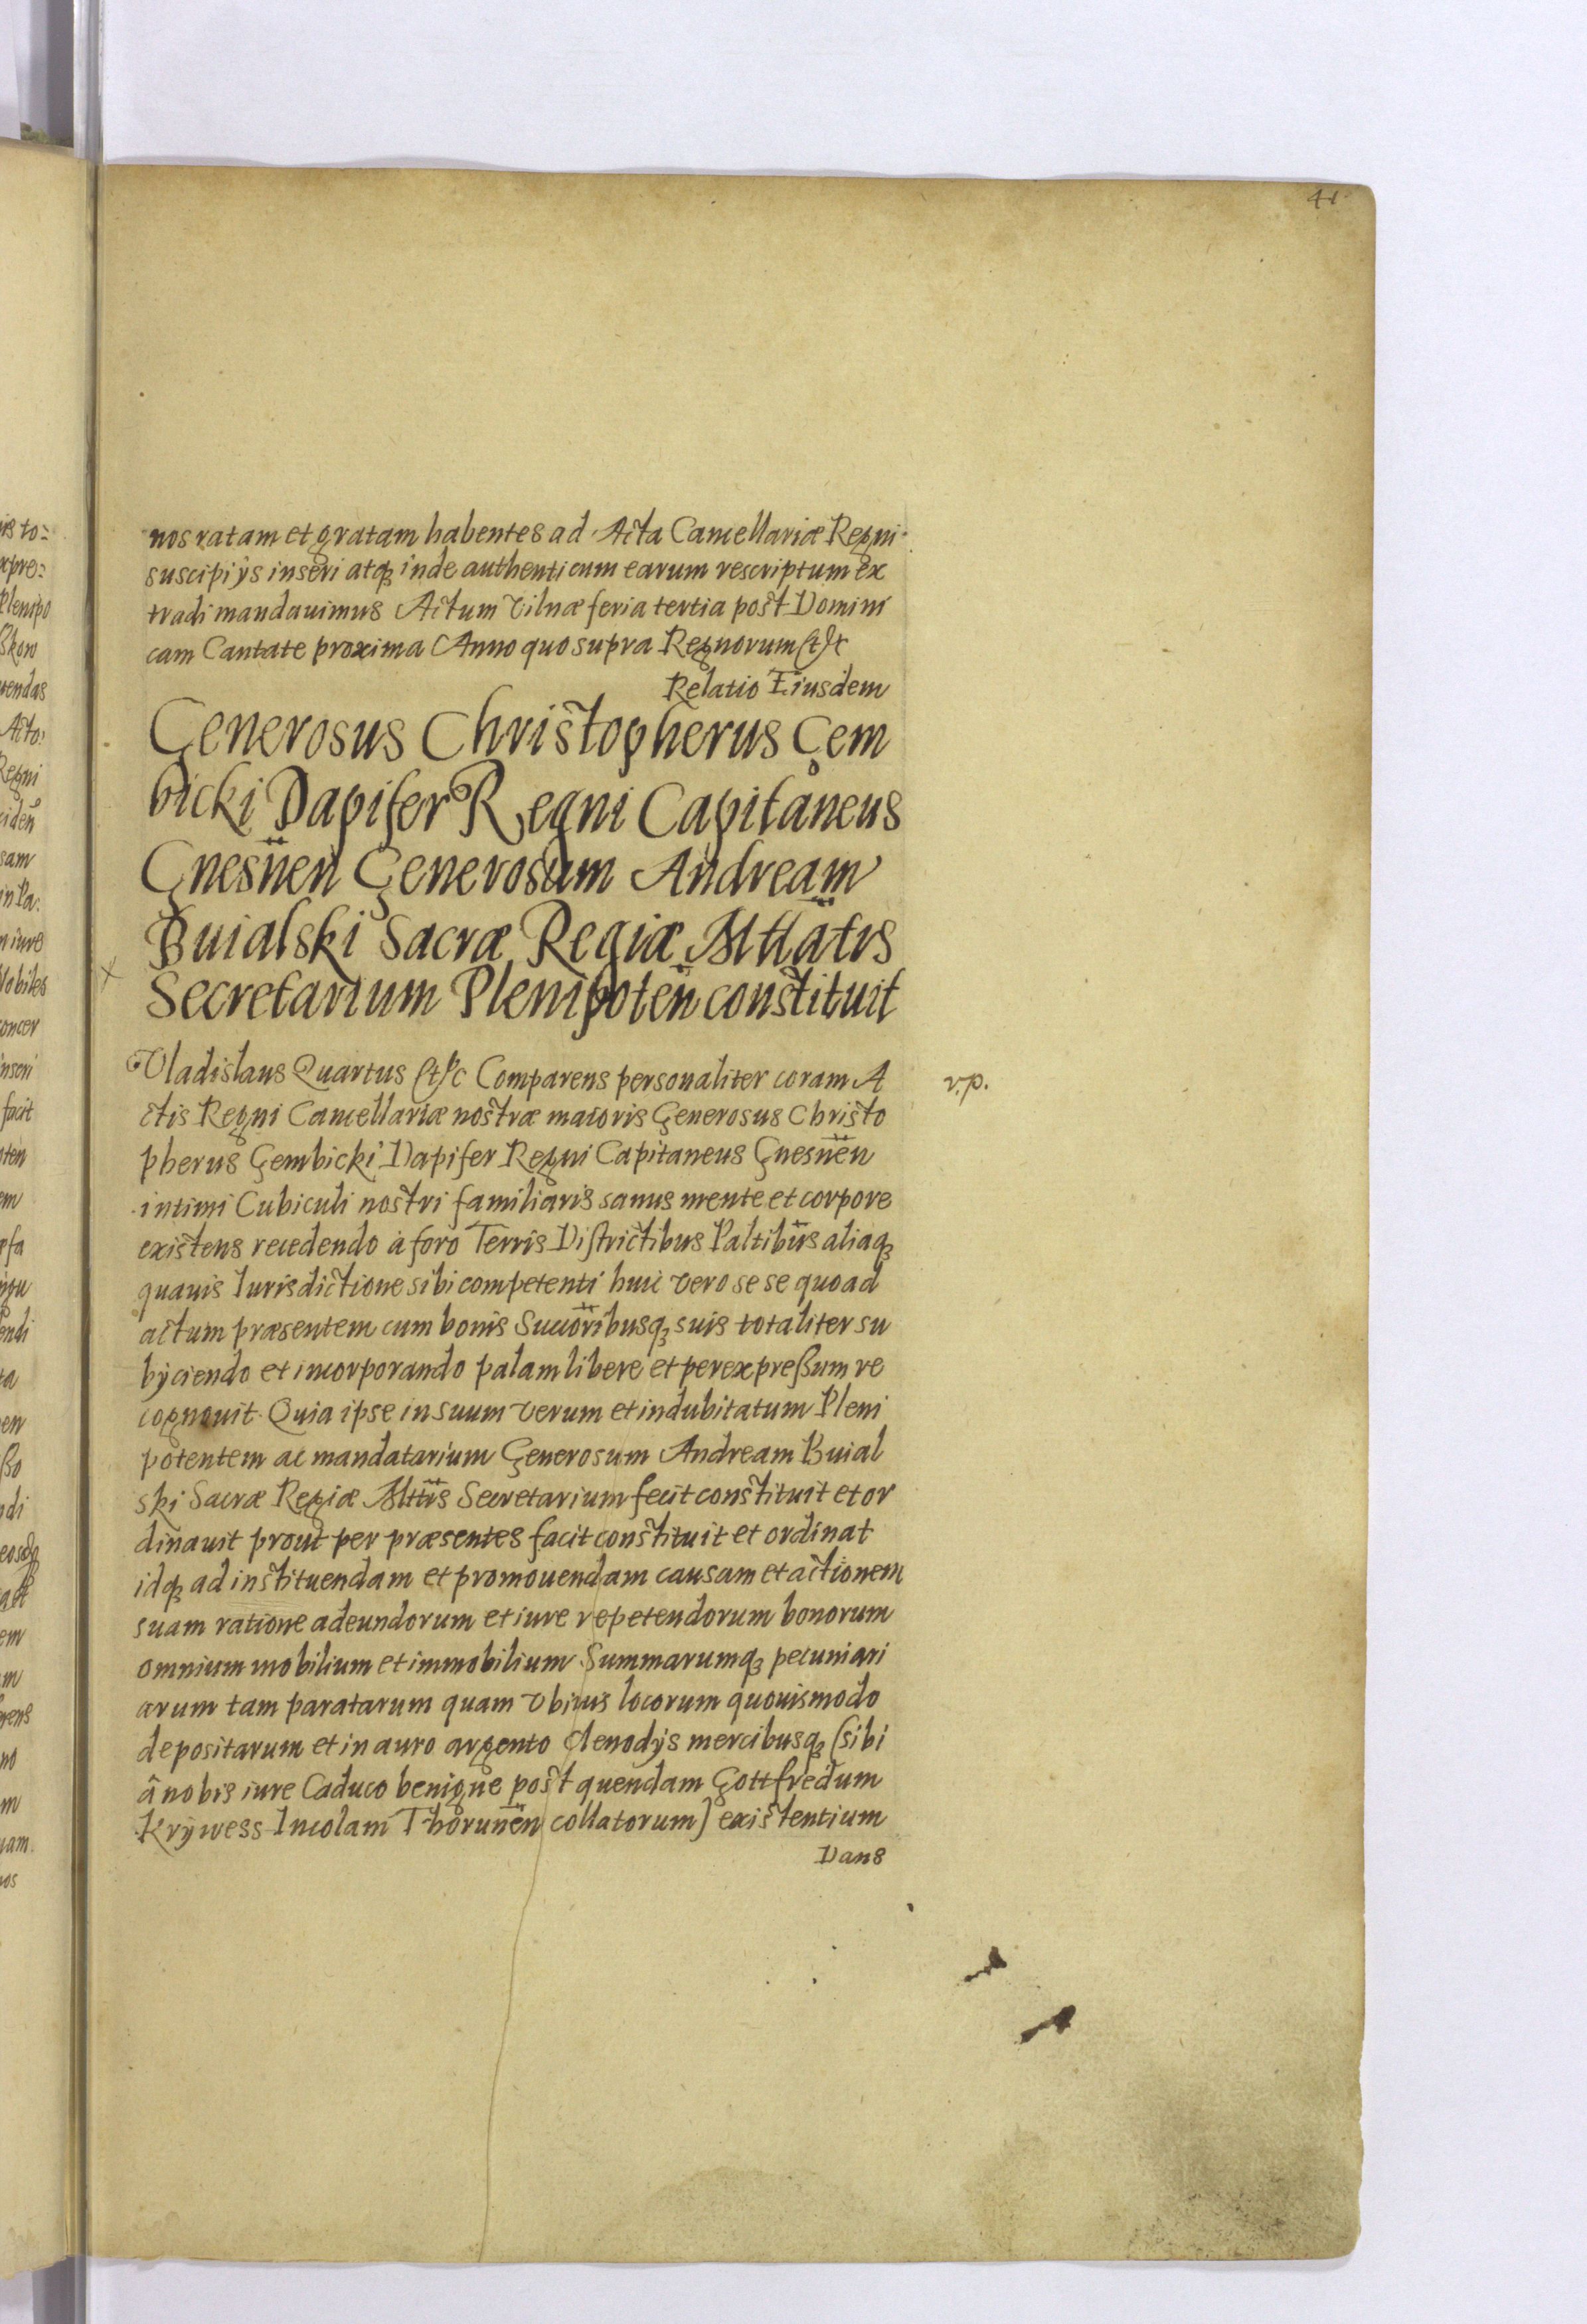 41.
nos ratam et gratam habentes ad Acta Cancellariæ Regni
suscipi ÿs inseri atq₃ inde authenticum earum rescriptum ex
tradi mandauimus Actum Vilnæ feria tertia post Domini
cam Cantate proxima Anno quo supra Regnorum etc
Relatio Eiusdem
Generosus Christopherus Gem
bicki Dapifer Regni Capitaneus
Gnesnen Generosum Andream
Buialski Sacræ Regiæ Mttatis
Secretarium Plenipoten constituit
Vladislaus Quartus etc Comparens personaliter coram A
ctis Regni Cancellariæ nostræ maioris Generosus Christo
v.p.
pherus Gembicki Dapifer Regni Capitaneus Gnesnen
intimi Cubiculi nostri familiaris sanus mente et corpore
existens recedendo à foro Terris Districtibus Paltibus aliaq₃
quauis Iurisdictione sibi competenti huic vero se se quoad
actum præsentem cum bonis Succoribusq₃ suis totaliter su
bÿciendo et incorporando palam libere et per expreßum re
cognouit Quia ipse in suum verum et indubitatum Pleni
potentem ac mandatarium Generosum Andream Buial
ski Sacræ Regiæ Mttis Secretarium fecit constituit et or
dinauit prout per præsentes facit constituit et ordinat
idq₃ ad instituendam et promouendam causam et actionem
suam ratione adeundorum et iure repetendorum bonorum
omnium mobilium et immobilium Summarumq₃ pecuniari
arum tam paratarum quam vbiuis locorum quouismodo
depositarum et in auro argento clenodÿs mercibusq₃ (sibi
â nobis iure Caduco benigne post quendam Gottfredum
Krÿwess Incolam Thorunen collatorum) existentium
Dans